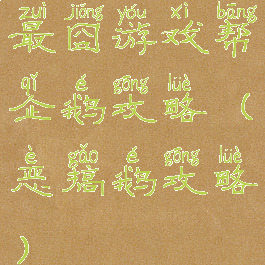 zuì jiǒng yóu xì bāng
最囧游戏帮
qǐ é gōng lüè
企鹅攻略(
è gǎo é gōng lüè
恶搞鹅攻略
)